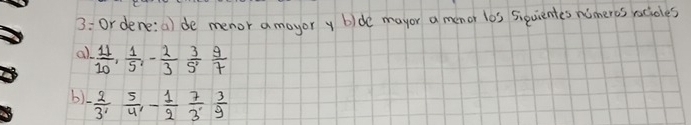 3: Ordene: a) de menor a mayor y b) de mayor a menor los siguientes números racioles
a) -11/10, 1/5, -2/3 3/5, 9/7
b) -2/3, 5/4, -1/2 7/3, 3/9